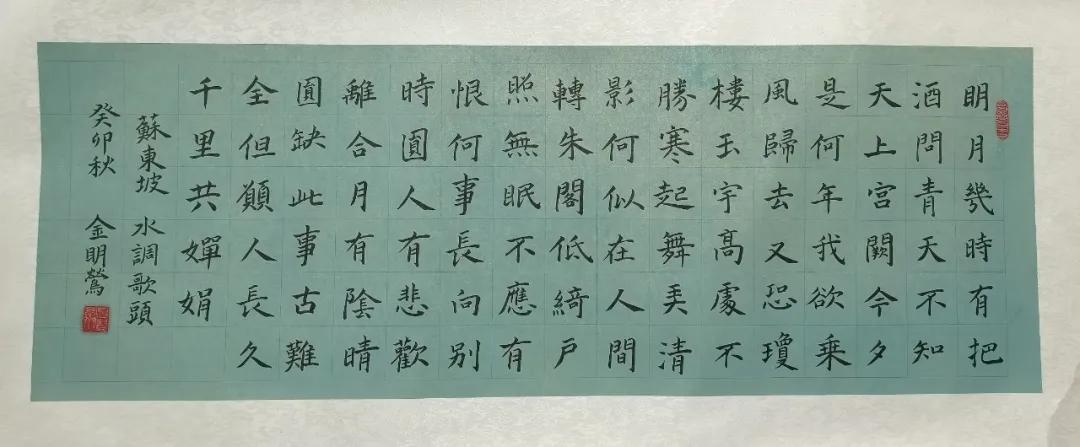 明月幾時有把
酒問青天不知
天上宮闕今夕
是何年我欲乘
風歸去又恐瓊
樓玉宇高處不
勝寒起舞弄清
影何似在人間
轉朱閣低綺戶
照無眠不應有
恨何事長向別
時圓人有悲歡
離合月有陰晴
圓缺此事古難
全但願人長久
千里共嬋娟
蘇東坡 水調歌頭
癸卯秋 金明鶯